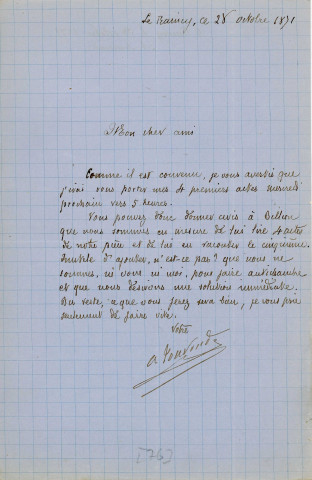 Le Raincy, ce 28 octobre 1871
Mon cher ami
Comme il est convenu, je vous avertis que
j'irai vous porter mes 4 premiers actes mercredi
prochain vers 5 heures.
Vous pouvez donc donner avis à
que nous sommes en mesure de lui lire 4 actes
de notre pièce et de lui en raconter le cinquième.
Inutile d'ajouter, n'est-ce pas ? que nous ne
sommes, ni vous ni moi, pour faire antichambre
et que nous désirons une solution immédiate.
Du reste, ce que vous ferez sera bien, je vous prie
seulement de faire vite.
Votre
[76]